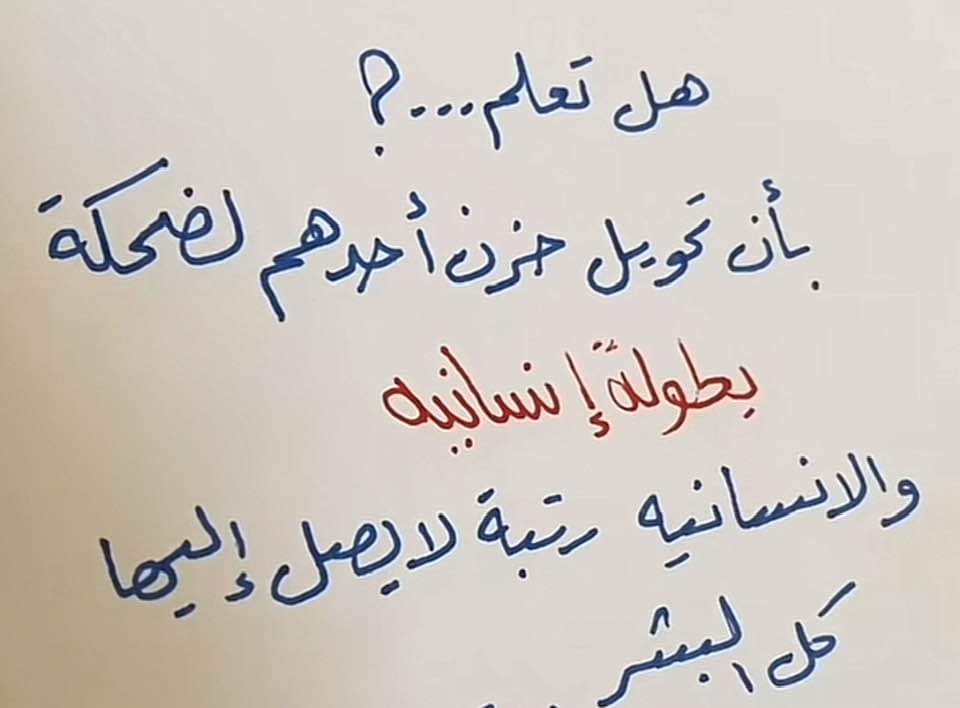 هل تعلم...؟
بأن تحويل حزن أحدهم لضحكة
بطولة إنسانيه
والانسانيه رتبة لا يصل إليها
كل البشر ..